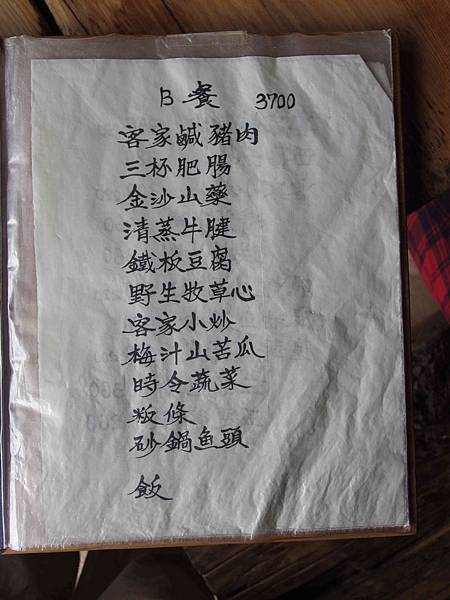 B餐 3700
客家鹹豬肉
三杯肥腸
金沙山藥
清蒸牛腱
鐵板豆腐
野生牧草心
客家小炒
梅汁山苦瓜
時令蔬菜
粄條
砂鍋魚頭
飯